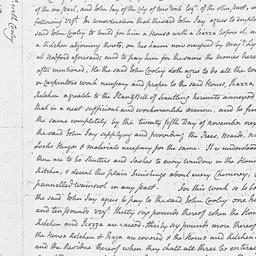 of the one part, and John Jay of the City of New York Esqr. of the other part, wit
following vizt. In consideration that the said John Jay agrees to employ
said John Cooley to build for him a House with a Piazza before it, an
a Kitchen adjoining thereto, on his Farm now occupied by Majr. Ly
at Bedford aforesaid; and to pay him for the same the monies herein
after mentioned, He the said John Cooley doth agree to do all the wo
or Carpenters work necessary and proper to the said House, Piazza,
Kitchen agreable to the Plans &c of building hereunto annexed
that in a neat sufficient and workmanlike manner, and to fin
the same completely by the twenty fifth Day of November nex
the said John Jay supplying and providing the Trees, Boards, na
Locks Hinges & materials necessary for the same. It is understood
there are to be Shutters and Sashes to every window in the House
Kitchen, & decent tho plain finishings about every Chimney, &
pannelled wainscot in any part. For this work so to be
the said John Jay agrees to pay to the said John Cooley one hu
and ten pounds vizt. thirty six pounds thereof when the House
Kitchen and Piazza are raised: thirty six pounds more thereof
the House Kitchen & Piazza are covered & the House and Kitchen
and the Residue thereof when they shall all three be entirely